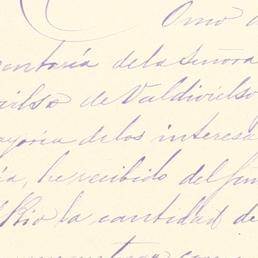 Como a
entoría de la Señora
de Valdivielso
ayoria de los interesa
ia, he recibido del Jun
Rio la cantidad de